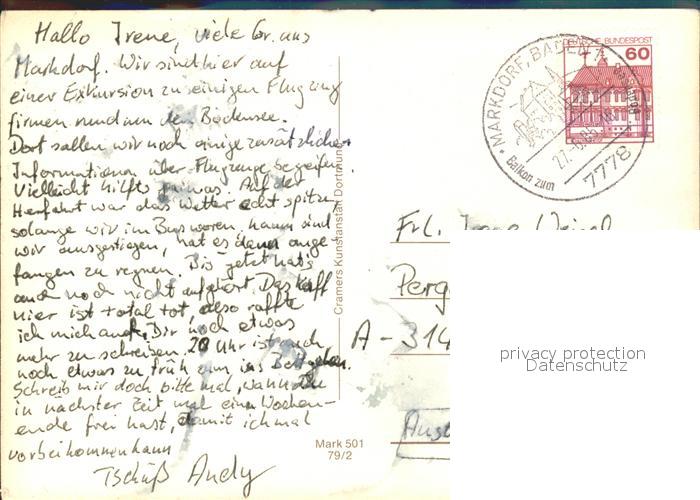 Hallo Irene, viele Gr. aus
Markdorf. Wir sind hier auf
einer Exkursion zu einigen Flugzeug
firmen rund um den Bodensee.
Dort sollen wir noch einige zusätzliche
Informationen über Flugzeuge begreifen.
Vielleicht hilfts etwas. Auf der
Herfahrt war das Wetter echt spitze,
solange wir im Bus waren, kaum sind
wir ausgestiegen, hat es dann ange-
fangen zu regnen. Bis jetzt hat's
auch noch nicht aufgehört. Das Kaff
hier ist total tot, also raffte
ich mich auf, Dir noch etwas
mehr zu schreiben. 20 Uhr ist auch
noch etwas zu früh um ins Bett gehen.
Schreib mir doch bitte mal, wann Du
in nächster Zeit mal ein Wochen-
ende frei hast, damit ich mal
vorbeikommen kann
Tschüß Andy
Cramers Kunstanstalt Dortmund
Mark 501
79/2
DEUTSCHE BUNDESPOST
60
MARKDORF, BADEN 1
Balkon zum
7778
Frl. Irene
Perg
A - 314
privacy protection
Datenschutz